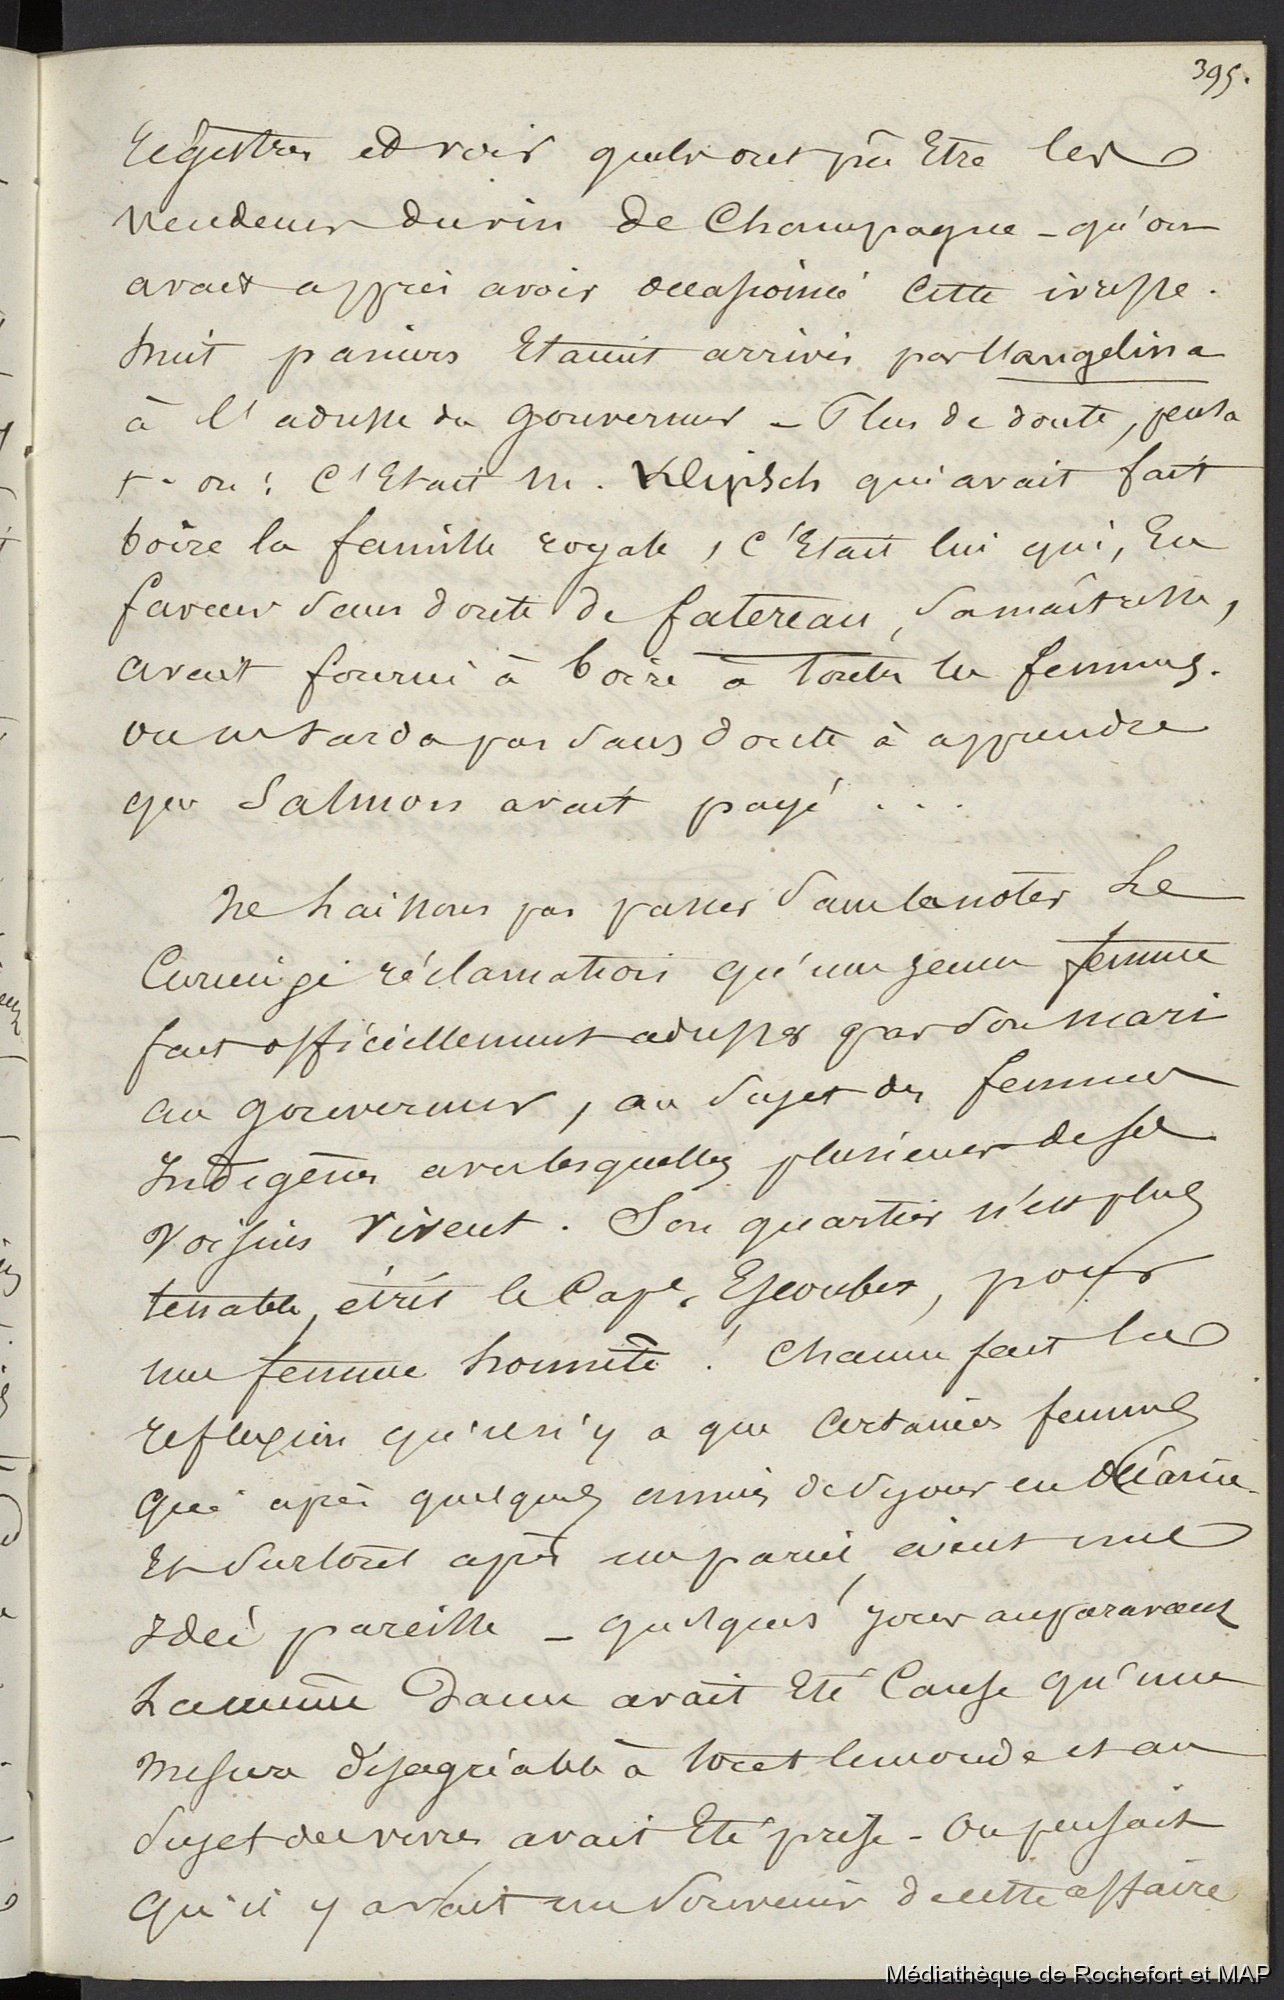 395.
régistres et voir quels ont pû Etre les
vendeurs du vin de Champagne - qu'on
avait appris avoir occasionné cette ivresse.
huit paniers Etaient arrivés par l'langelina
à l'adresse du Gouverneur - Plus de doute, pensa
t-on ; C'Etait M. Klipsch qui avait fait
boire la famille royale, C'Etait lui qui, En
faveur sans doute de fatereau, sa maîtresse,
avait fourni à boire à toutes les femmes.
on ne tarda pas sans doute à apprendre
que Salmon avait payé . . .
Ne laissons pas passer sans la noter La
Curieuse réclamation qu'une jeune femme
fait officiellement adresser par son mari
au gouverneur, au sujet des femmes
Indigènes avec lesquelles plusieurs de ses
Voisins vivent. Son quartier n'est plus
tenable, écrit le Cape. Escoubes, pour
une femme honnête ! Chacun fait la
réflexion qu'il n'y a que certaines femmes
qui après quelques années de séjour en Océanie
Et surtout après un pareil, aient une
Idée pareille - quelques jours auparavant
La même Dame avait Eté Cause qu'une
mesure désagréable à tout le monde et au
sujet des vivres avait Eté prise - On pensait
qu'il y avait un souvenir de cette affaire
Médiathèque de Rochefort et MAP